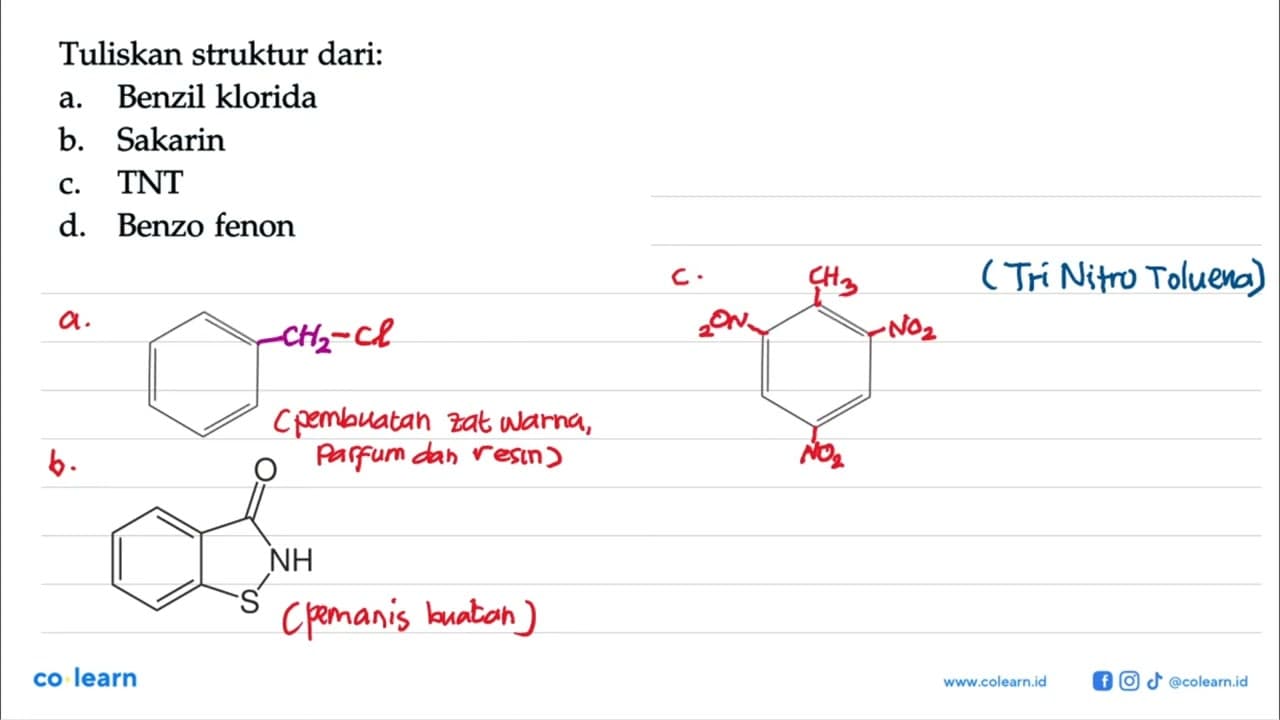 Tuliskan struktur dari:
a. Benzil klorida
b. Sakarin
c. TNT
d. Benzo fenon
a.
CH2-Cl
(pembuatan zat warna,
Parfum dan resin)
b.
O
NH
S
(pemanis buatan)
c.
CH3
(Tri Nitro Toluena)
2ON
NO2
NO2
co learn
www.colearn.id
@colearn.id